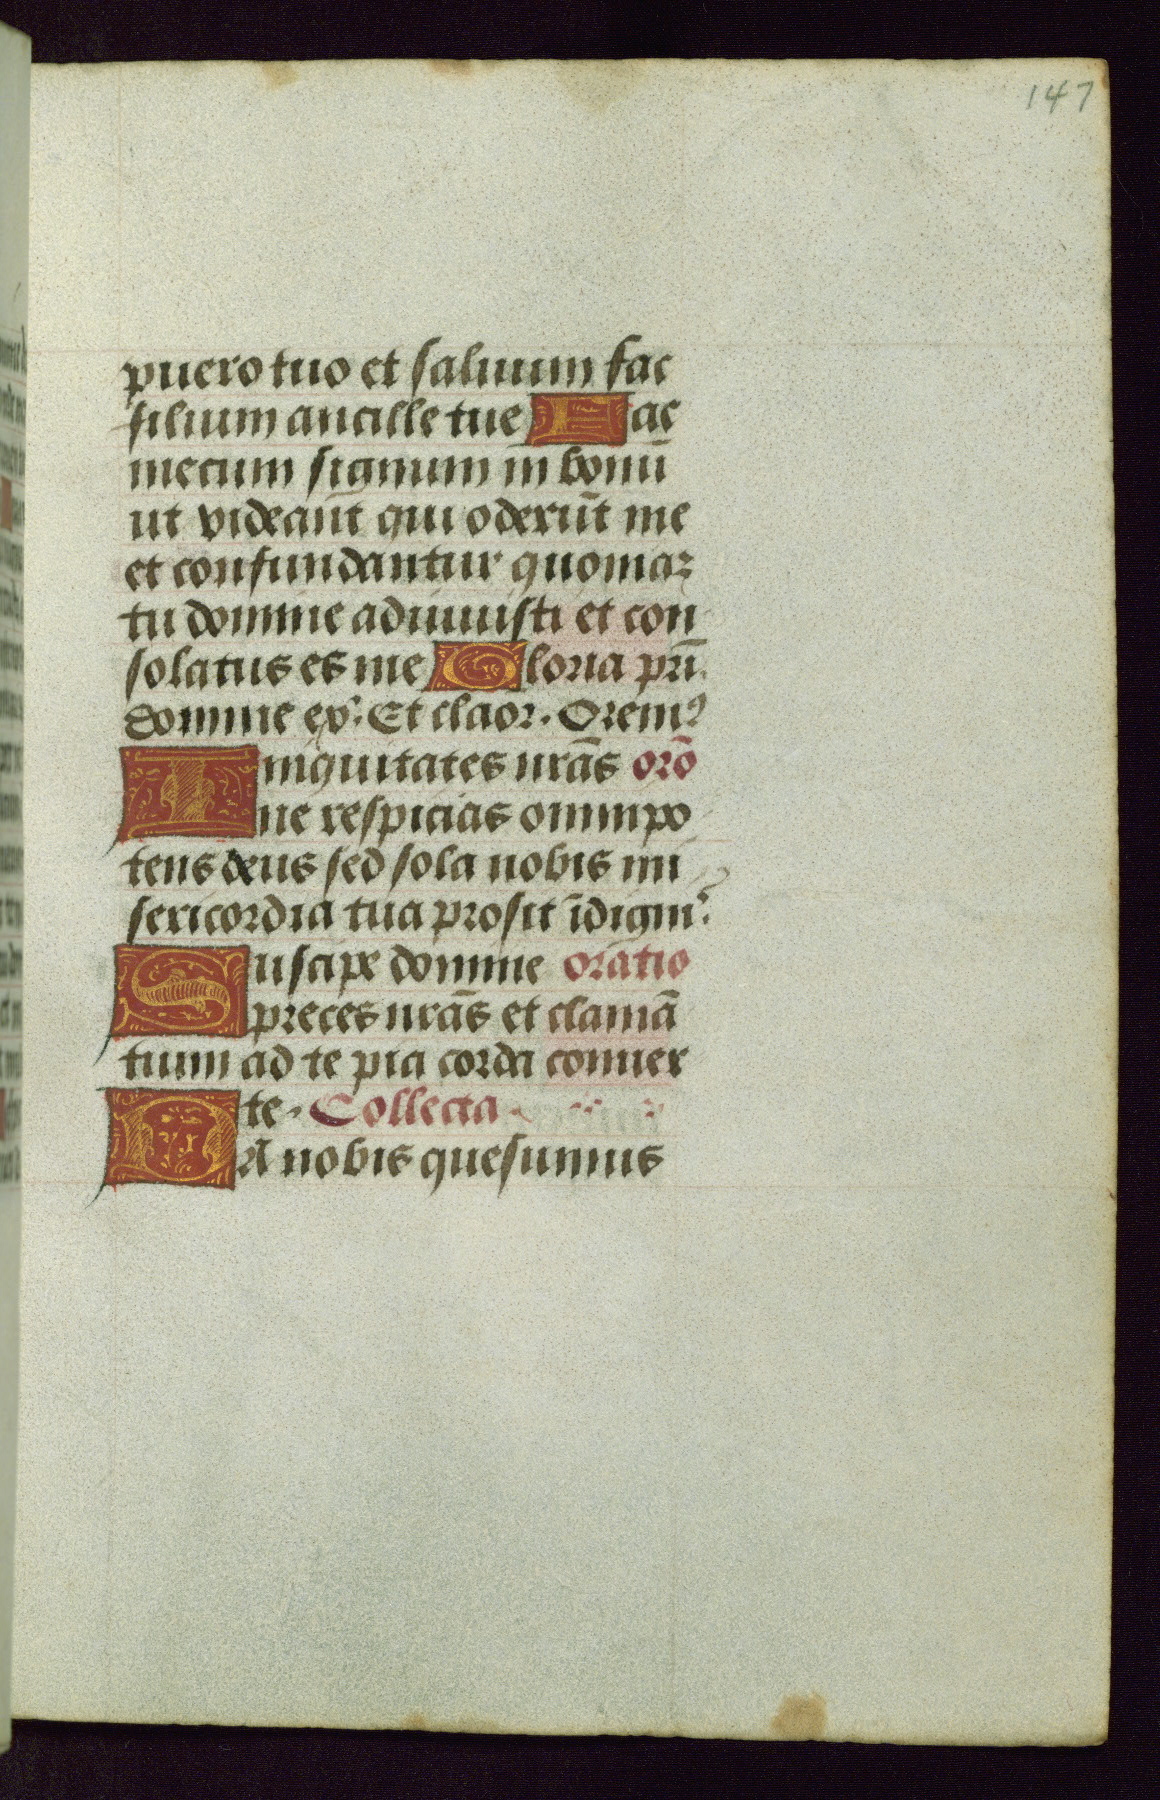 147
puero tuo et saluum fac
filium ancille tue Fac
mecum signum in bonū
ut videāut qui oderūt me
et confundantur quoniaꝫ
tu domine adiuuisti et con
solatus es me Gloria pr̄i.
domine ex̾. Et claor. Orem᾽
Iniquitates nr̄as orō
ne respicias omnipo
tens deus sed sola nobis mi
sericordia tua prosit īdigni᾽.
Suscipe domine oratio
preces nr̄as et clamā
tium ad te pia corda conuer
te. Collecta.
DA nobis quesumus